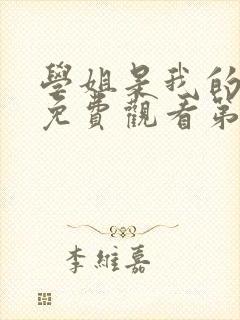 學姐是我的
免費觀看第
李維嘉